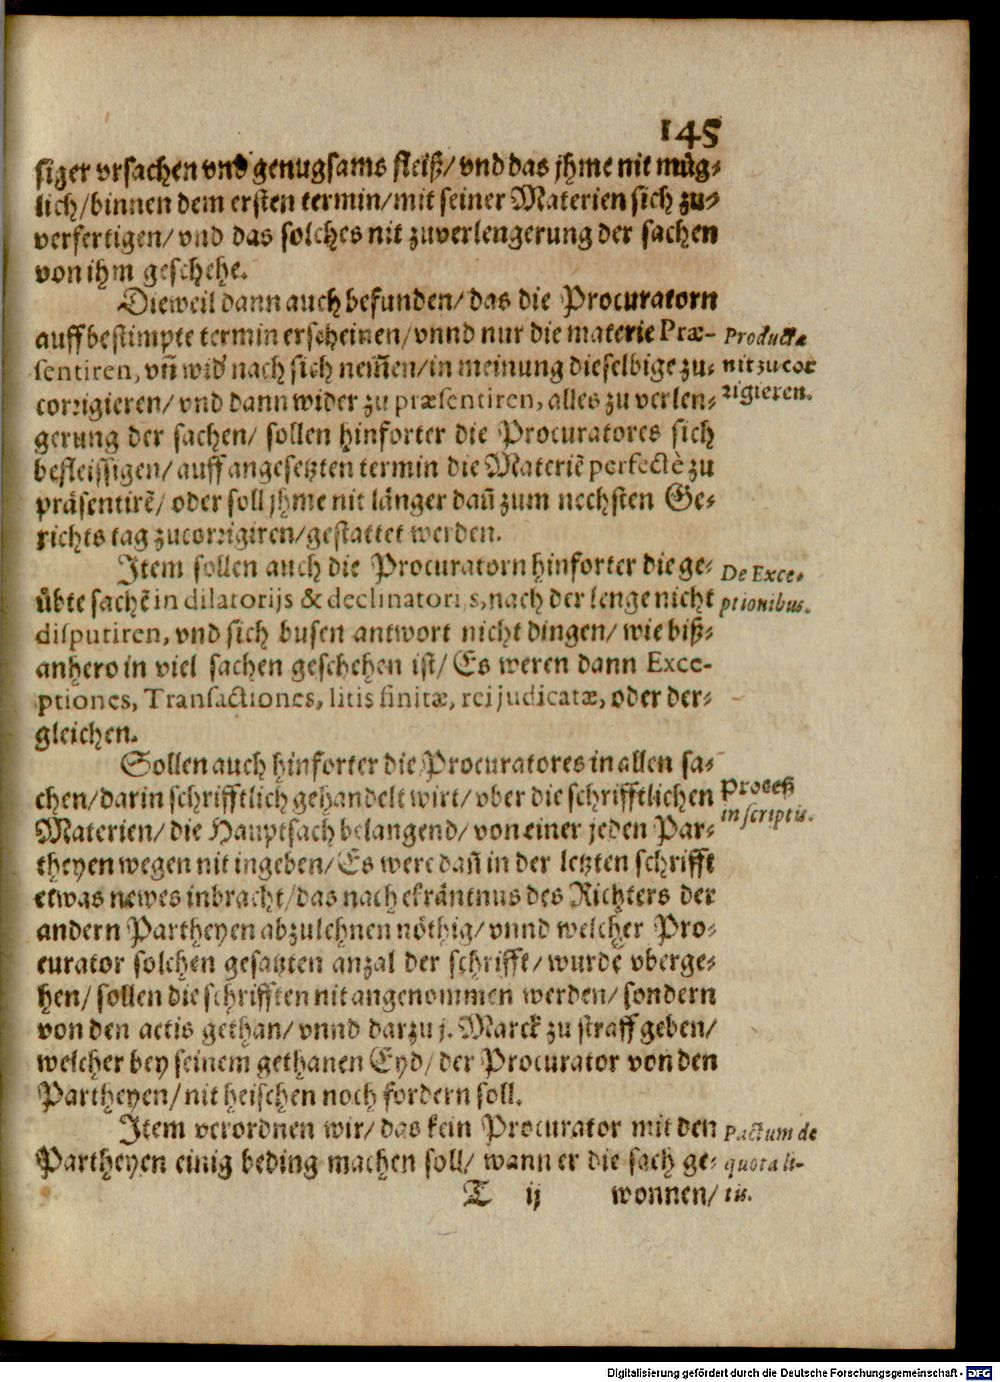 145
siger vrsachen vnd genugsams fleiß/ vnd das jhme nit müg-
lich/ binnen dem ersten termin/ mit seiner Materien sich zu-
verfertigen/ vnd das solches nit zuverlengerung der sachen
von ihm geschehe.
Dieweil dann auch befunden/ das die Procuratorn
auff bestimpte termin erscheinen/ vnnd nur die materie Præ-
sentiren, vñ wid' nach sich nem̃en/ in meinung dieselbige zu-
corrigieren/ vnd dann wider zu præsentiren, alles zu verlen-
gerung der sachen/ sollen hinforter die Procuratores sich
befleissigen/ auff angesetzten termin die Materiẽ perfectè zu
präsentirẽ/ oder soll jhme nit länger dañ zum nechsten Ge-
richts tag zucorrigiren/ gestattet werden.
Producta
nit zu cor
rigieren.
Item sollen auch die Procuratorn hinforter die ge-
übte sachẽ in dilatorijs & declinatorijs, nach der lenge nicht
disputiren, vnd sich busen antwort nicht dingen/ wie biß-
anhero in viel sachen geschehen ist/ Es weren dann Exce-
ptiones, Transactiones, litis finitæ, rei judicatæ, oder der-
gleichen.
De Exce-
ptionibus.
Sollen auch hinforter die Procuratores in allen sa-
chen/ darin schrifftlich gehandelt wirt/ vber die schrifftlichen
Materien/ die Hauptsach belangend/ von einer jeden Par-
theyen wegen nit ingeben/ Es were dañ in der letzten schrifft
etwas newes inbracht/ das nach ekräntnus des Richters der
andern Partheyen abzulehnen nöthig/ vnnd welcher Pro-
curator solchen gesatzten anzal der schrifft/ wurde vberge-
hen/ sollen die schrifften nit angenommen werden/ sondern
von den actis gethan/ vnnd darzu j. Marck zu straff geben/
welcher bey seinem gethanen Eyd/ der Procurator von den
Partheyen/ nit heischen noch fordern soll.
Proceß
in scriptis.
Item verordnen wir/ das kein Procurator mit den
Partheyen einig beding machen soll/ wann er die sach ge-
Pactum de
quota li-
tis.
T ij wonnen/
Digitalisierung gefördert durch die Deutsche Forschungsgemeinschaft - DFG